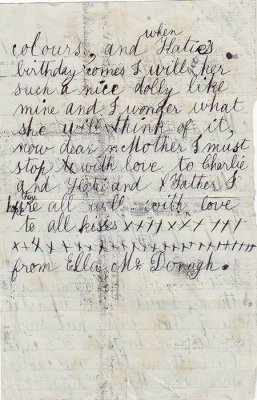 colours, and when Hatie's
birthday comes I will her
such a nice dolly like
mine and I wonder what
she will think of it,
now dear Mother I must
stop with love to Charlie
and and Father I
hope are all well with love
to all kisses xxxxxxx xxx
xxxxxxxxxxxxxxxxxxxxxx
from Ellie Mc Donogh.